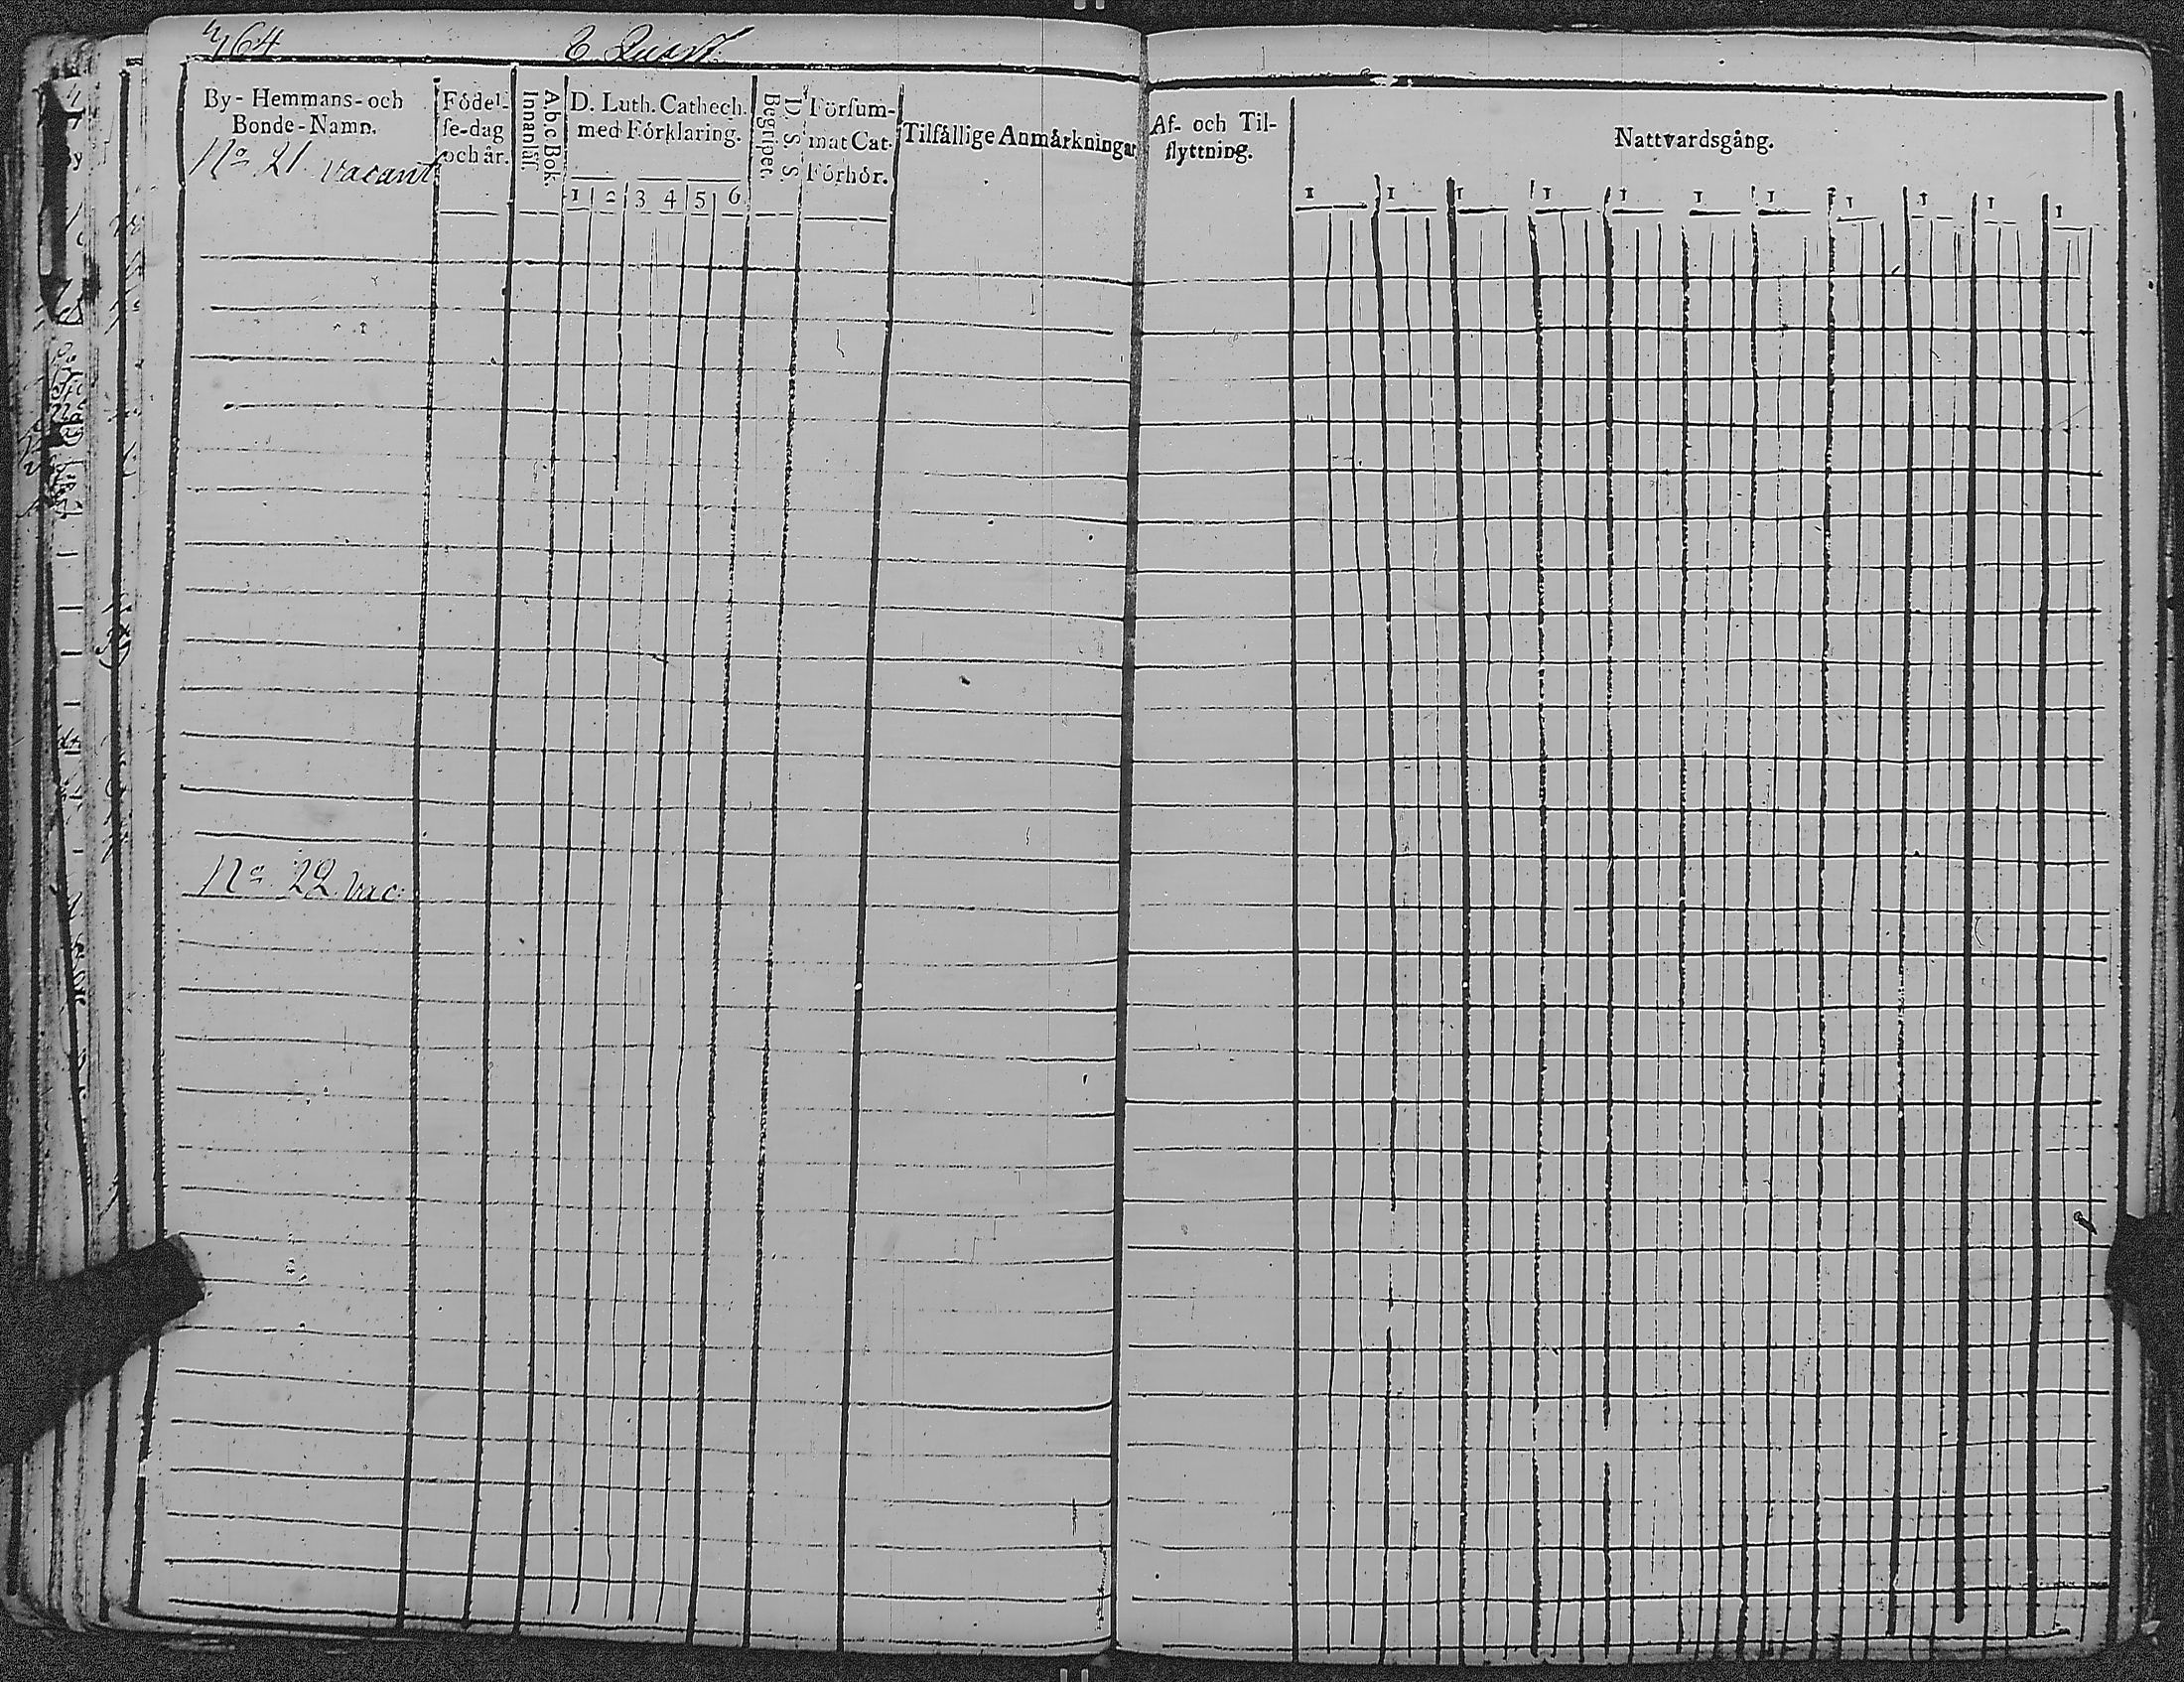 464 6 Quart.
By- Hemmans- och
Bonde-Namn.
No 21 vacant
Födel-
se-dag
och år.
A b c Bok.
Innanläs.
D. Luth. Cathech.
med Förklaring.
1 2 3 4 5 6
D. S. S.
Begripet.
Försum-
mat Cat.
Förhör.
Tilfällige Anmärkningar
No 22 vac:
Af- och Til-
flyttning.
Nattvardsgång.
1 1 1 1 1 1 1 1 1 1 1